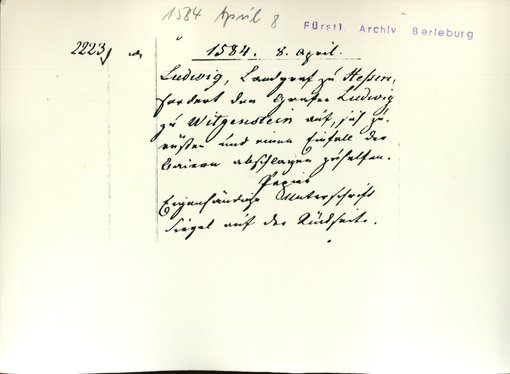 1584 April 8
Fürstl. Archiv Berleburg
2223
1584. 8. April.
Ludwig, Landgraf zu Hessen,
fordert den Grafen Ludwig
zu Witgenstein auf, sich zu
rüsten und einen Einfall der
Baiern abschlagen zu helfen.
Papier
Eigenhändige Unterschrift
Siegel auf der Rückseite.